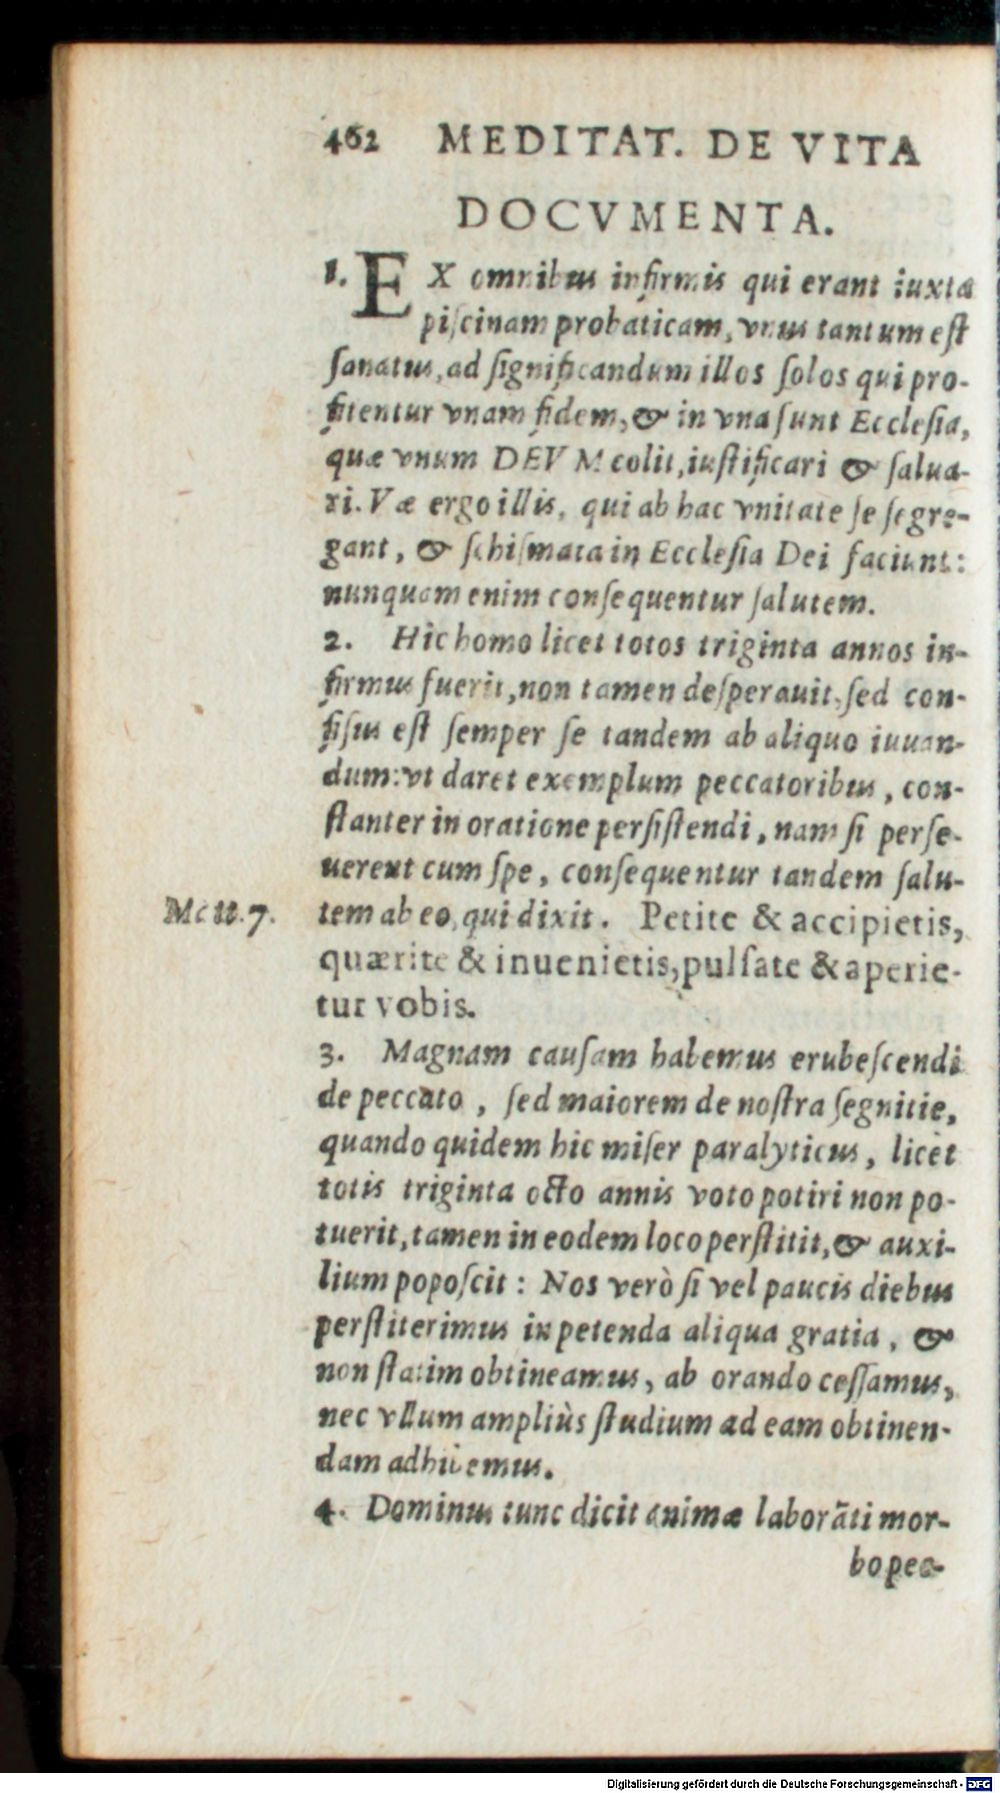 462 MEDITAT. DE VITA
DOCVMENTA.
1. EX omnibus infirmis qui erant iuxta
piſcinam probaticam, vnus tantum eſt
ſanatus, ad ſignificandum illos ſolos qui pro-
fitentur vnam fidem, & in vna ſunt Eccleſia,
quæ vnum DEVM colit, iuſtificari & ſalua-
ri. Væ ergo illis, qui ab hac vnitate ſe ſegre-
gant, & ſchiſmata in Eccleſia Dei faciunt:
nunquam enim conſequentur ſalutem.
2. Hic homo licet totos triginta annos in-
firmus fuerit, non tamen deſperauit, ſed con-
fiſus eſt ſemper ſe tandem ab aliquo iuuan-
dum: vt daret exemplum peccatoribus, con-
ſtanter in oratione perſiſtendi, nam ſi perſe-
uerent cum ſpe, conſequentur tandem ſalu-
Matt. 7. tem ab eo, qui dixit. Petite & accipietis,
quærite & inuenietis, pulſate & aperie-
tur vobis.
3. Magnam cauſam habemus erubeſcendi
de peccato, ſed maiorem de noſtra ſegnitie,
quando quidem hic miſer paralyticus, licet
totis triginta octo annis voto potiri non po-
tuerit, tamen in eodem loco perſtitit, & auxi-
lium popoſcit: Nos verò ſi vel paucis diebus
perſtiterimus in petenda aliqua gratia, &
non ſtatim obtineamus, ab orando ceſſamus,
nec vllum ampliùs ſtudium ad eam obtinen-
dam adhibemus.
4. Dominus tunc dicit animæ laborāti mor-
bo pec-
Digitalisierung gefördert durch die Deutsche Forschungsgemeinschaft - DFG